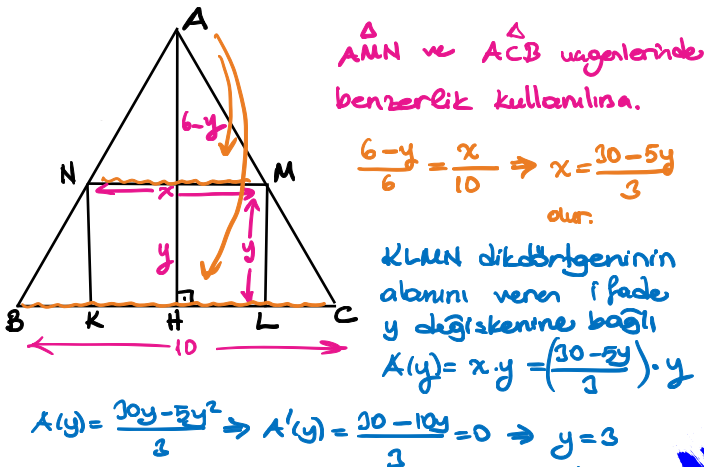 A
6-y
N
x
M
y
y
B
K
H
L
C
10
AMN ve ACB üçgenlerinde
benzerlik kullanılırsa.
6-y/6 = x/10 ⇒ x = 30-5y/3
olur.
KLMN dikdörtgeninin
alanını veren ifade
y değişkenine bağlı
A(y) = x.y = (30-5y/3).y
A(y) = 30y-5y²/3 ⇒ A'(y) = 30-10y/3 = 0 ⇒ y = 3